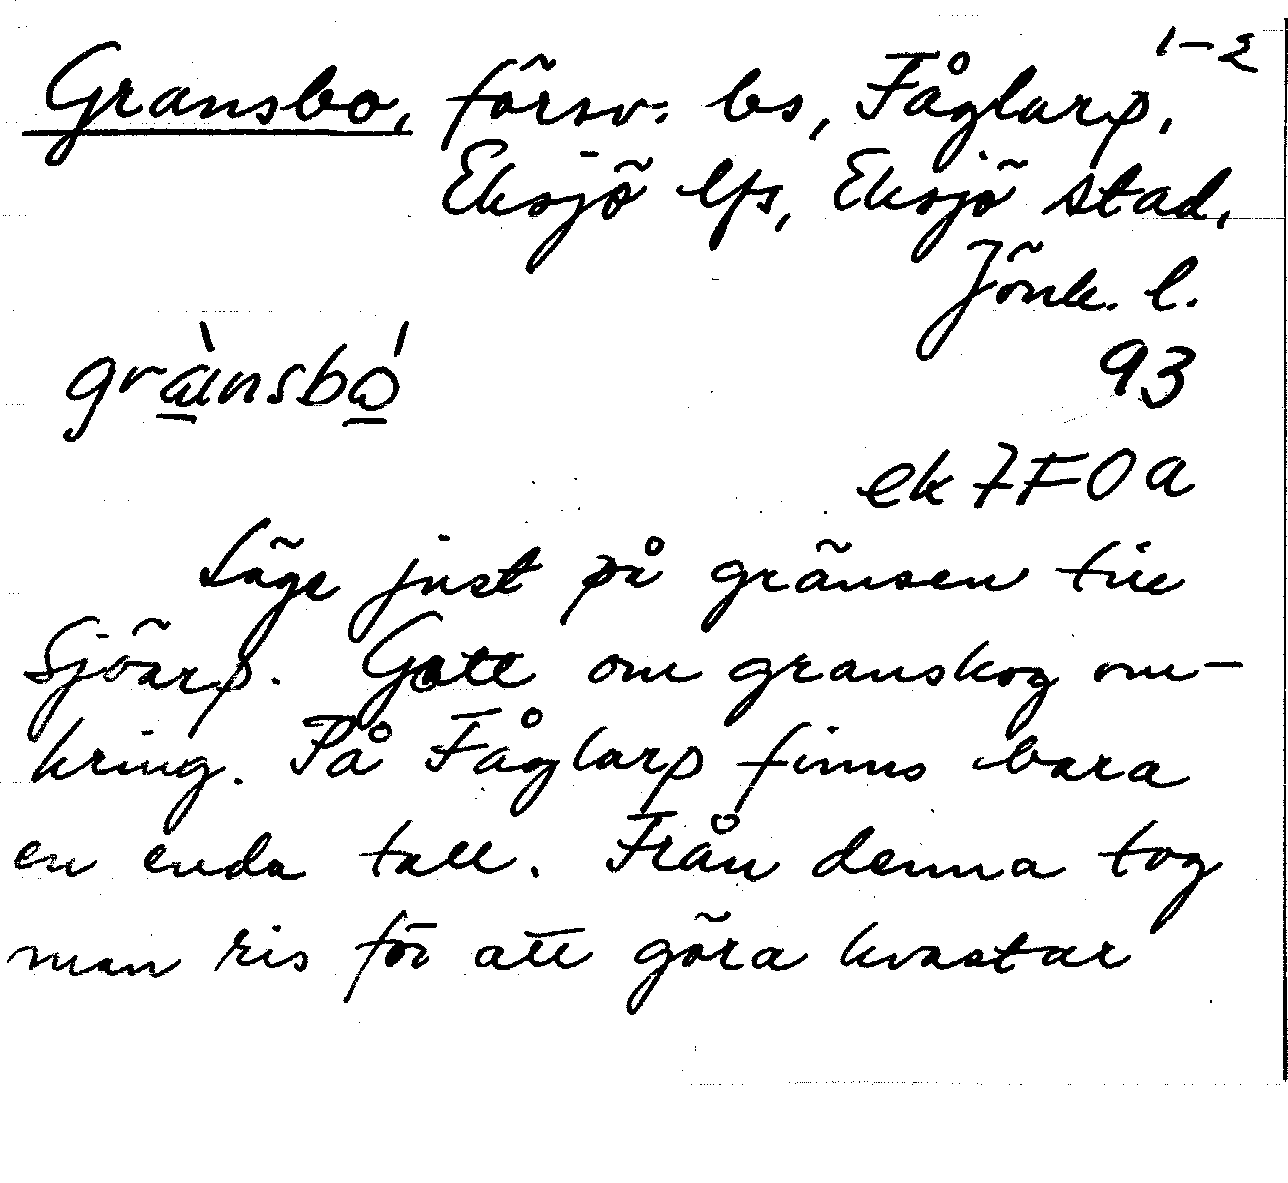 1-2
Gransbo, försv. bs, Fåglarp,
Eksjö lfs, Eksjö stad,
Jönk. l.
93
grànsbó
ek 7F0a
Läge just på gränsen till
Sjöarp. Gott om granskog om-
kring. På Fåglarp finns bara
en enda tall. Från denna tog
man ris för att göra kvastar